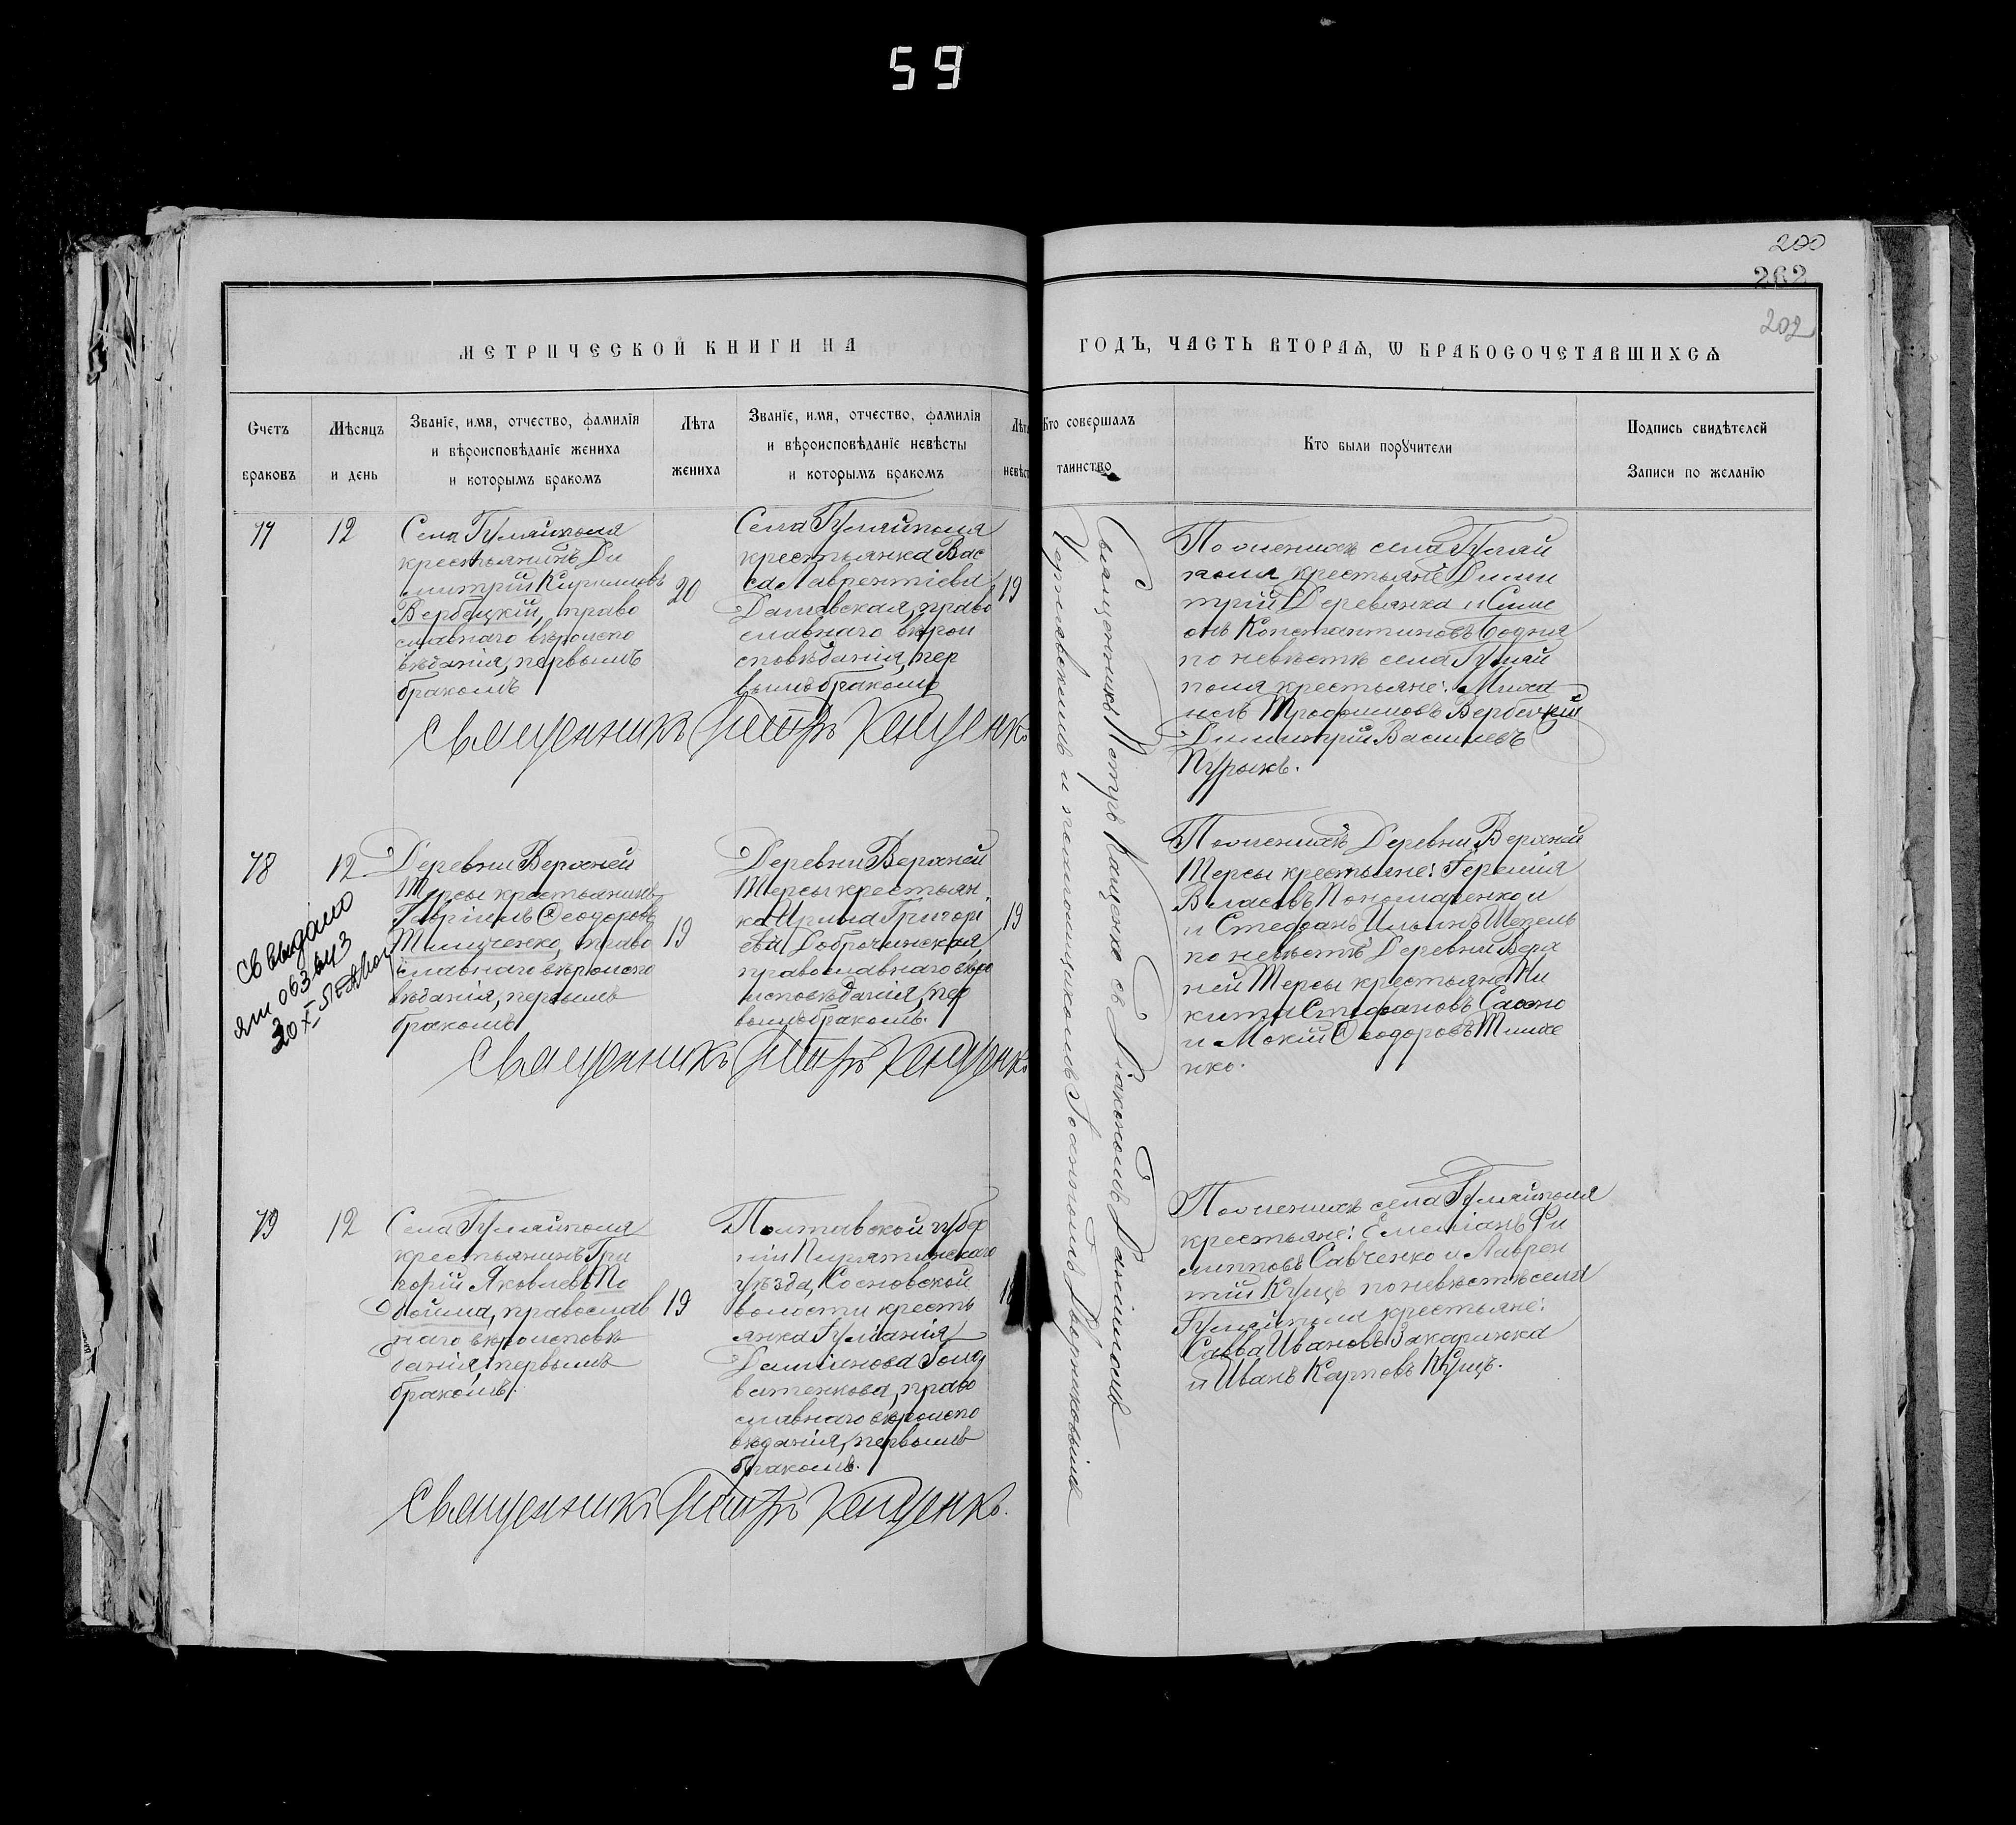 59
200
262
202
МЕТРИЧЕСКОЙ КНИГИ НА
ГОДЪ, ЧАСТЬ ВТОРАѦ, Ѡ БРАКОСОЧЕТАВШИХСѦ
Счетъ
браковъ
Мѣсяцъ
и день
Званіе, имя, отчество, фамилія
и вѣроисповѣданіе жениха
и которымъ бракомъ
Лѣта
жениха
Званіе, имя, отчество, фамилія
и вѣроисповѣданіе невѣсты
и которымъ бракомъ
Кто совершалъ
таинство
Кто были поручители
Подпись свидѣтелей
Записи по желанію
77
12
Села Гуляйполя
крестьянинъ Ди
митрій Кирилловъ
Вербецкій, право
славнаго вѣроиспо
вѣданія, первымъ
бракомъ
20
Села Гуляйполя
крестьянка Вас
са Лаврентіева
православ
славнаго вѣрои
сповѣданія, пер
вымъ бракомъ
19
Священникъ Петръ Кащенко
По женихѣ села Гуляй
поля крестьяне Дими
трій Деревянка и Симе
онъ Константиновъ Бодня
по невѣстѣ села Гуляй
поля крестьяне: Миха
илъ Трофимовъ Вербецкій
Димитрій Васильевъ
Пурыкъ.
78
12
Деревни Верхней
Терсы крестьянинъ
Гавріилъ Ѳеодоровъ
право
славнаго вѣроиспо
вѣданія, первымъ
бракомъ
19
Деревни Верхней
Терсы крестьян
ка Ирина Григорі
ева Доброчинская
православнаго вѣро
исповѣданія, пер
вымъ бракомъ.
19
Священникъ Петръ Кащенко
По женихѣ Деревни Верхней
Терсы крестьяне: Іеремія
Власовъ Пономаренко и
и Стефанъ Ильинъ
по невѣстѣ Деревни Верх
ней Терсы крестьяне Ни
кита Стефановъ
и Мокій Ѳеодоровъ Тимче
нко.
79
12
Села Гуляйполя
крестьянинъ Гри
горій Яковлевъ По
дойма, православ
наго вѣроисповѣ
данія, первымъ
бракомъ.
19
Полтавской губер
ніи Пирятинскаго
уѣзда, Сосновской
волости кресть
янка Гуліанія
Даміанова
право
славнаго вѣроиспо
вѣданія, первымъ
бракомъ.
Священникъ Петръ Кащенко.
По женихѣ села Гуляйполя
крестьяне: Емеліанъ Фи
липповъ Савченко и Лаврен
тій Куцъ по невѣстѣ села
Гуляйполя крестьяне:
Савва Ивановъ
и Иванъ Карповъ Куцъ.
Священникъ Петръ Кащенко съ Діакономъ Даніиломъ
и псаломщикомъ Іоанномъ Дворниковымъ